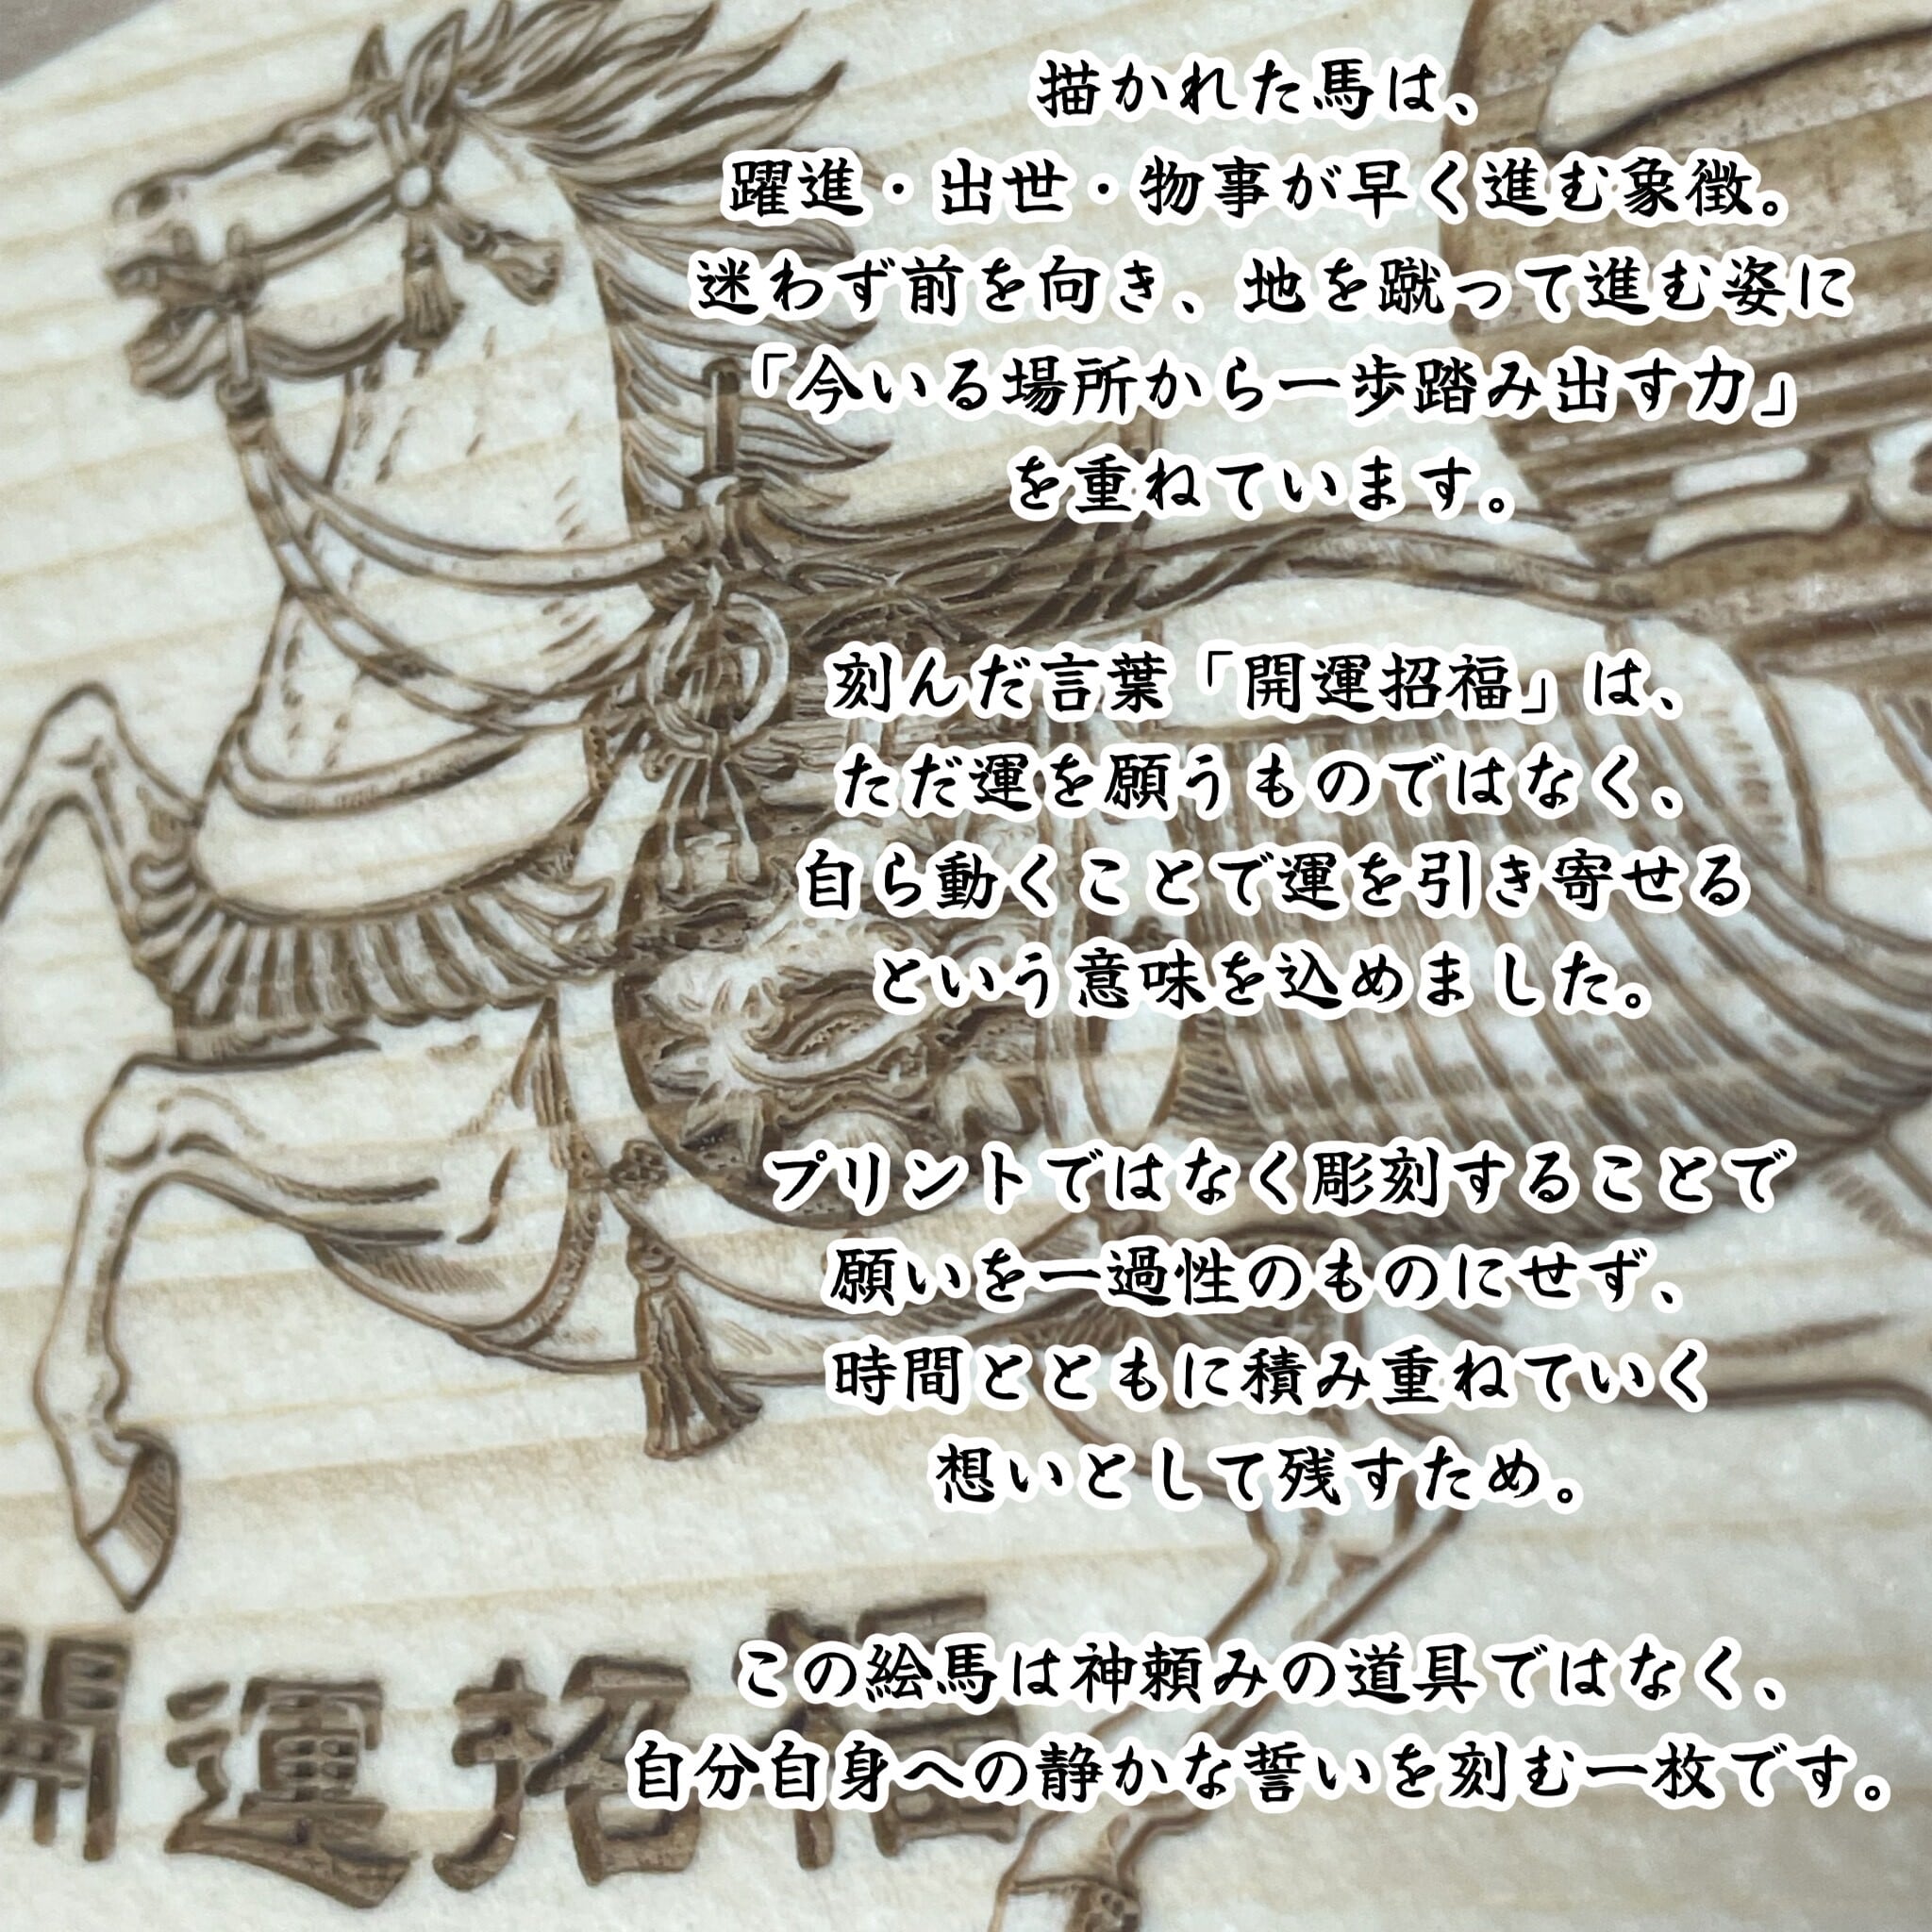 描かれた馬は、
躍進・出世・物事が早く進む象徴。
迷わず前を向き、地を蹴って進む姿に
「今いる場所から一歩踏み出す力」
を重ねています。
刻んだ言葉「開運招福」は、
ただ運を願うものではなく、
自ら動くことで運を引き寄せる
という意味を込めました。
プリントではなく彫刻することで
願いを一過性のものにせず、
時間とともに積み重ねていく
想いとして残すため。
この絵馬は神頼みの道具ではなく、
自分自身への静かな誓いを刻む一枚です。
開運招福